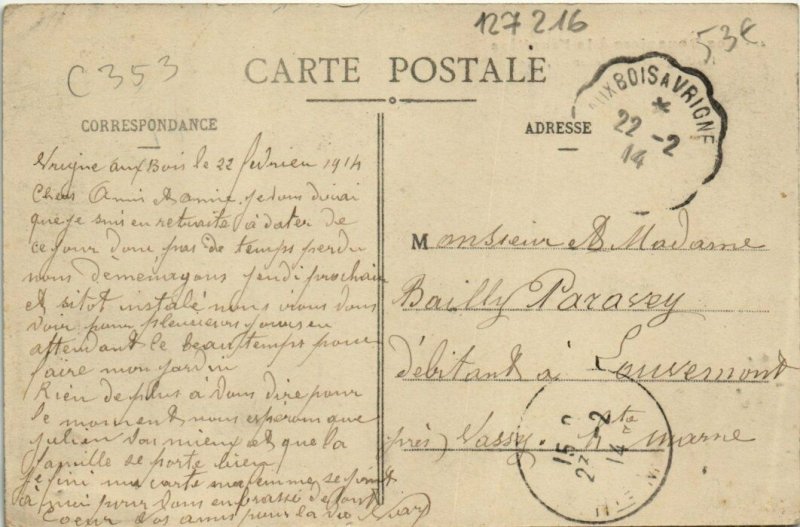 127216
53€
C353
CARTE POSTALE
CORRESPONDANCE
ADRESSE
UXBOIS A VRIGNE
*
22 -2
14
Vrigne aux Bois le 22 févrien 1914
Chers Amis & amie. je vous dirai
que je suis en retraite à dater de
ce jour donc pas de temps perdu
nous dèmenayons jeudi prochain
et sitot instalé nous irons vous
voir pour pleusieurs jours en
attendant le beau temps pour
faire mon jardin
Rien de plus à vous dire pour
le moment nous esperons que
julien va mieux et que la
famille se porte bien
je fini ma carte ma femme se joint
à moi pour vous enbrassé de tout
Coeur vos amis pour la vie
Monsieur & Madame
Bailly Paravey
débitant à Louvemont
près Vassy. Hte marne
15
27 -2
14